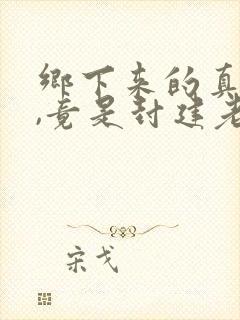 鄉下來的真
,竟是封建老
宋戈